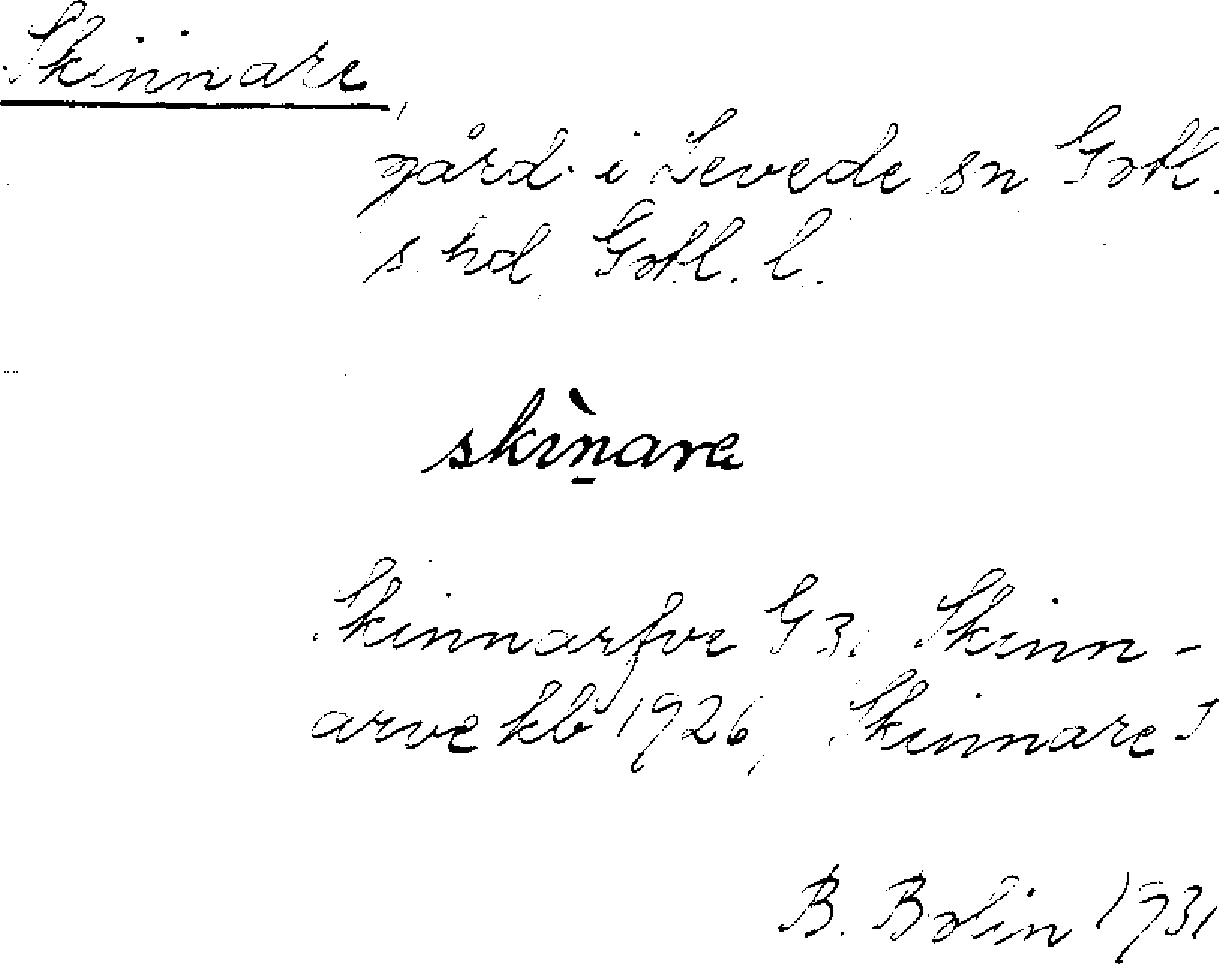 Skinnare,
gård i Levede sn Gotl.
s. hd Gotl. l.
skìn̠are
Skinnarfve G3, Skinn-
arve kb 1926, Skinnare J
B. Bolin 1931